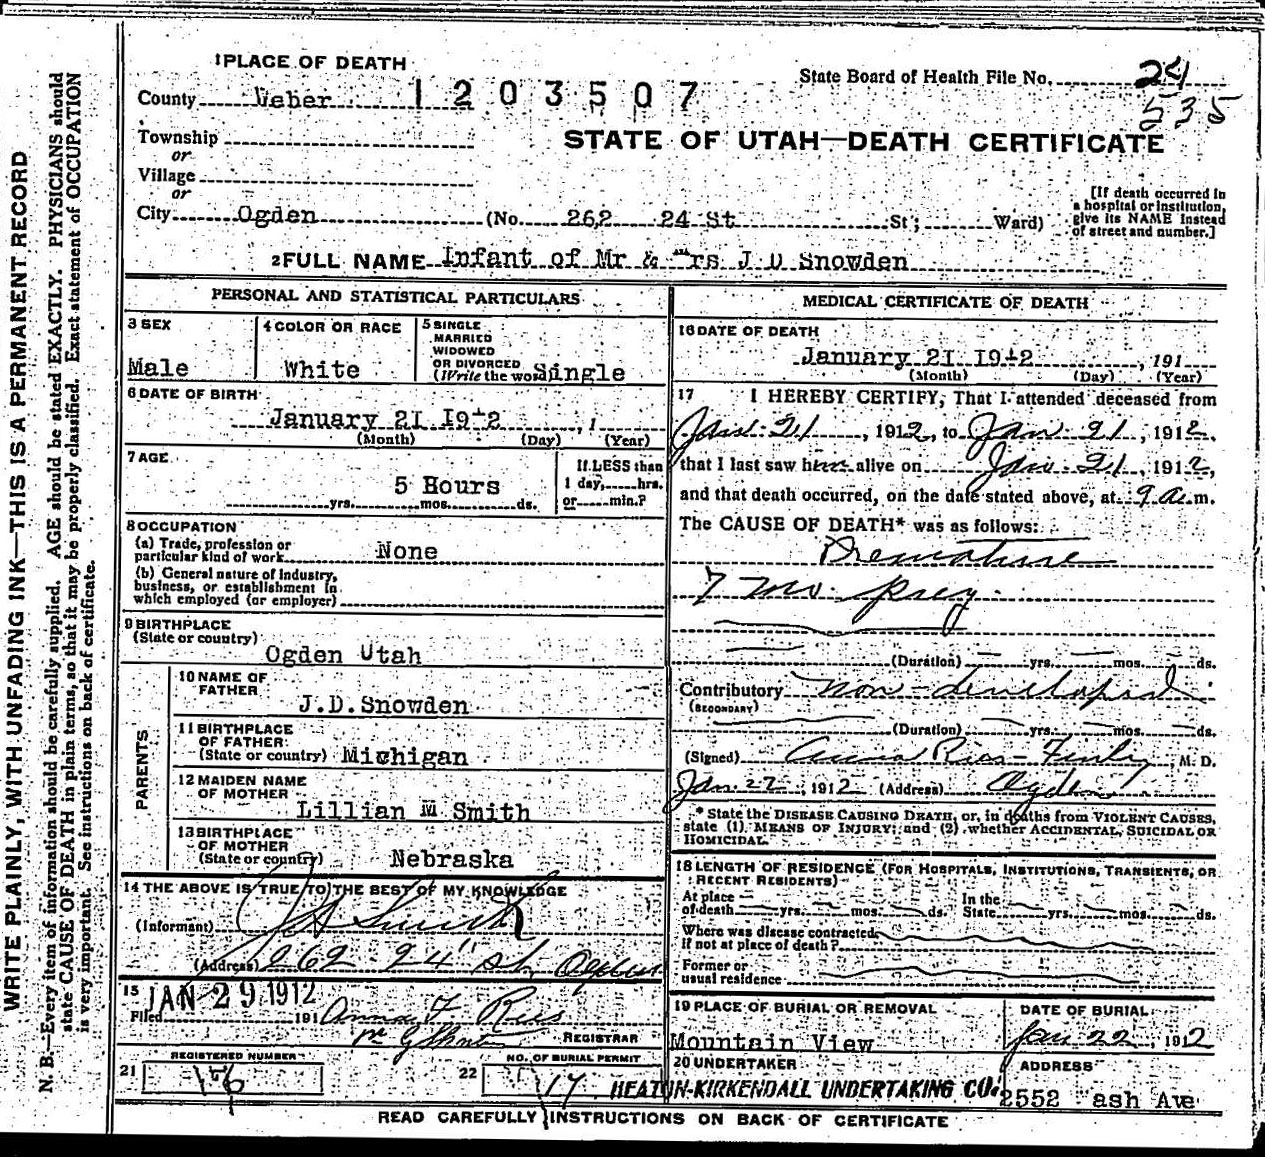 WRITE PLAINLY, WITH UNFADING INK—THIS IS A PERMANENT RECORD
N. B.—Every item of information should be carefully supplied. AGE should be stated EXACTLY. PHYSICIANS should
state CAUSE OF DEATH in plain terms, so that it may be properly classified. Exact statement of OCCUPATION
is very important. See instructions on back of certificate.
1 PLACE OF DEATH
State Board of Health File No. 24
535
County Weber 1203507
STATE OF UTAH—DEATH CERTIFICATE
Township
or
Village
or
City Ogden (No. 262 24 St St; Ward)
[If death occurred in
a hospital or institution,
give its NAME instead
of street and number.]
2 FULL NAME Infant of Mr & Mrs J D Snowden
PERSONAL AND STATISTICAL PARTICULARS
3 SEX
Male
4 COLOR OR RACE
White
5 SINGLE
MARRIED
WIDOWED
OR DIVORCED
(Write the word) Single
6 DATE OF BIRTH
January 21 1912, 1
(Month) (Day) (Year)
7 AGE
5 Hours
yrs. mos. ds.
If LESS than
1 day, hrs.
or min.?
8 OCCUPATION
(a) Trade, profession or
particular kind of work None
(b) General nature of industry,
business, or establishment in
which employed (or employer)
9 BIRTHPLACE
(State or country)
Ogden Utah
PARENTS
10 NAME OF
FATHER
J.D.Snowden
11 BIRTHPLACE
OF FATHER
(State or country) Michigan
12 MAIDEN NAME
OF MOTHER
Lillian M Smith
13 BIRTHPLACE
OF MOTHER
(State or country) Nebraska
14 THE ABOVE IS TRUE TO THE BEST OF MY KNOWLEDGE
(Informant) Smith
(Address) 262 24" st, Ogden
15
JAN 29 1912
Filed 191 Anna F Rees
REGISTRAR
21 REGISTERED NUMBER
22 NO. OF BURIAL PERMIT
17
MEDICAL CERTIFICATE OF DEATH
16 DATE OF DEATH
January 21 1912, 191
(Month) (Day) (Year)
17 I HEREBY CERTIFY, That I attended deceased from
Jan. 21, 1912, to Jan. 21, 1912,
that I last saw him alive on Jan. 21, 1912,
and that death occurred, on the date stated above, at 9 a.m.
The CAUSE OF DEATH* was as follows:
Premature
7 mo. preg.
(Duration) yrs. mos. ds.
Contributory non-development
(SECONDARY)
(Duration) yrs. mos. ds.
(Signed) Anna Ries-Finley, M. D.
Jan. 22, 1912 (Address) Ogden
* State the DISEASE CAUSING DEATH, or, in deaths from VIOLENT CAUSES,
state (1) MEANS OF INJURY; and (2) whether ACCIDENTAL, SUICIDAL OR
HOMICIDAL.
18 LENGTH OF RESIDENCE (FOR HOSPITALS, INSTITUTIONS, TRANSIENTS, OR
RECENT RESIDENTS)
At place
of death yrs. mos. ds.
In the
State yrs. mos. ds.
Where was disease contracted,
if not at place of death?
Former or
usual residence
19 PLACE OF BURIAL OR REMOVAL
Mountain View
DATE OF BURIAL
Jan 22, 1912
20 UNDERTAKER
HEATON-KIRKENDALL UNDERTAKING CO.
ADDRESS
2552 ash Ave
READ CAREFULLY INSTRUCTIONS ON BACK OF CERTIFICATE